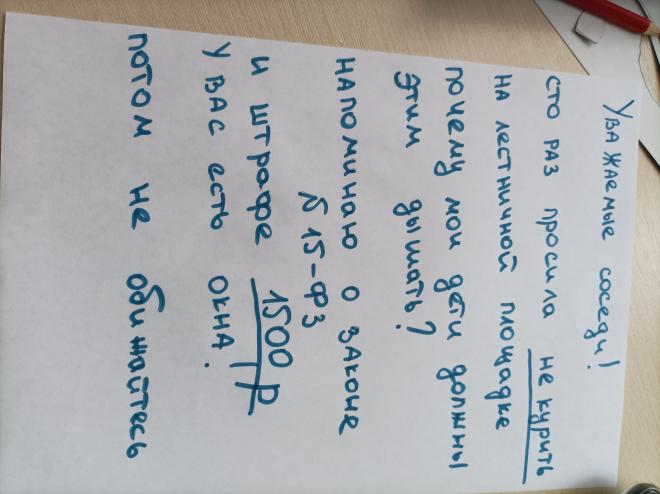 Уважаемые соседи!
сто раз просила не курить
на лестничной площадке
почему мои дети должны
этим дышать?
напоминаю о законе
№ 15-ФЗ
и штрафе 1500 р
у вас есть окна.
потом не обижайтесь